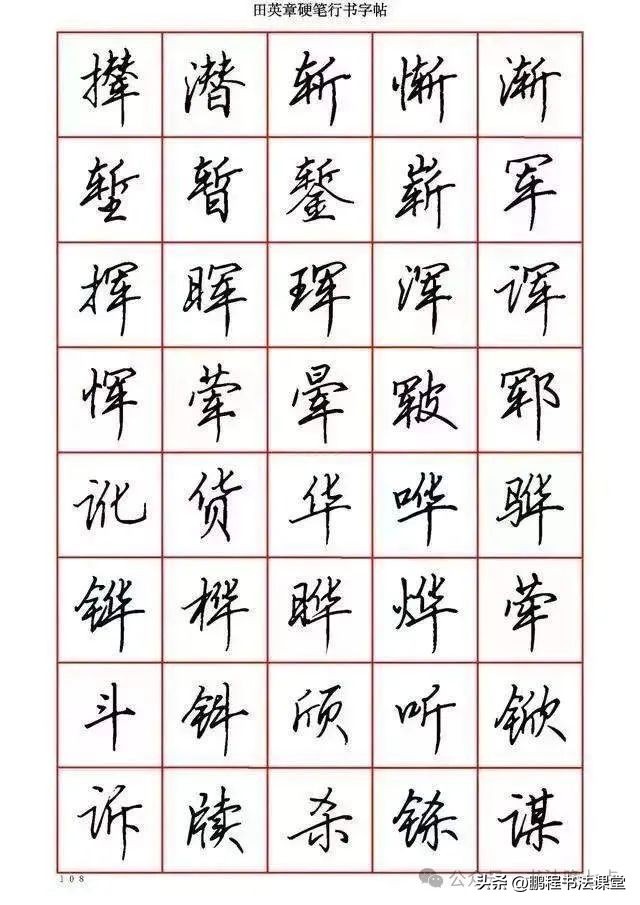 田英章硬笔行书字帖
撵 潜 斩 惭 渐
堑 暂 錾 崭 军
挥 晖 珲 浑 诨
恽 荤 晕 皲 郓
讹 货 华 哗 骅
铧 桦 晔 烨
斗 钭 颀 听 锨
诉 牍 杀 铩 谋
108
头条 @鹏程书法课堂